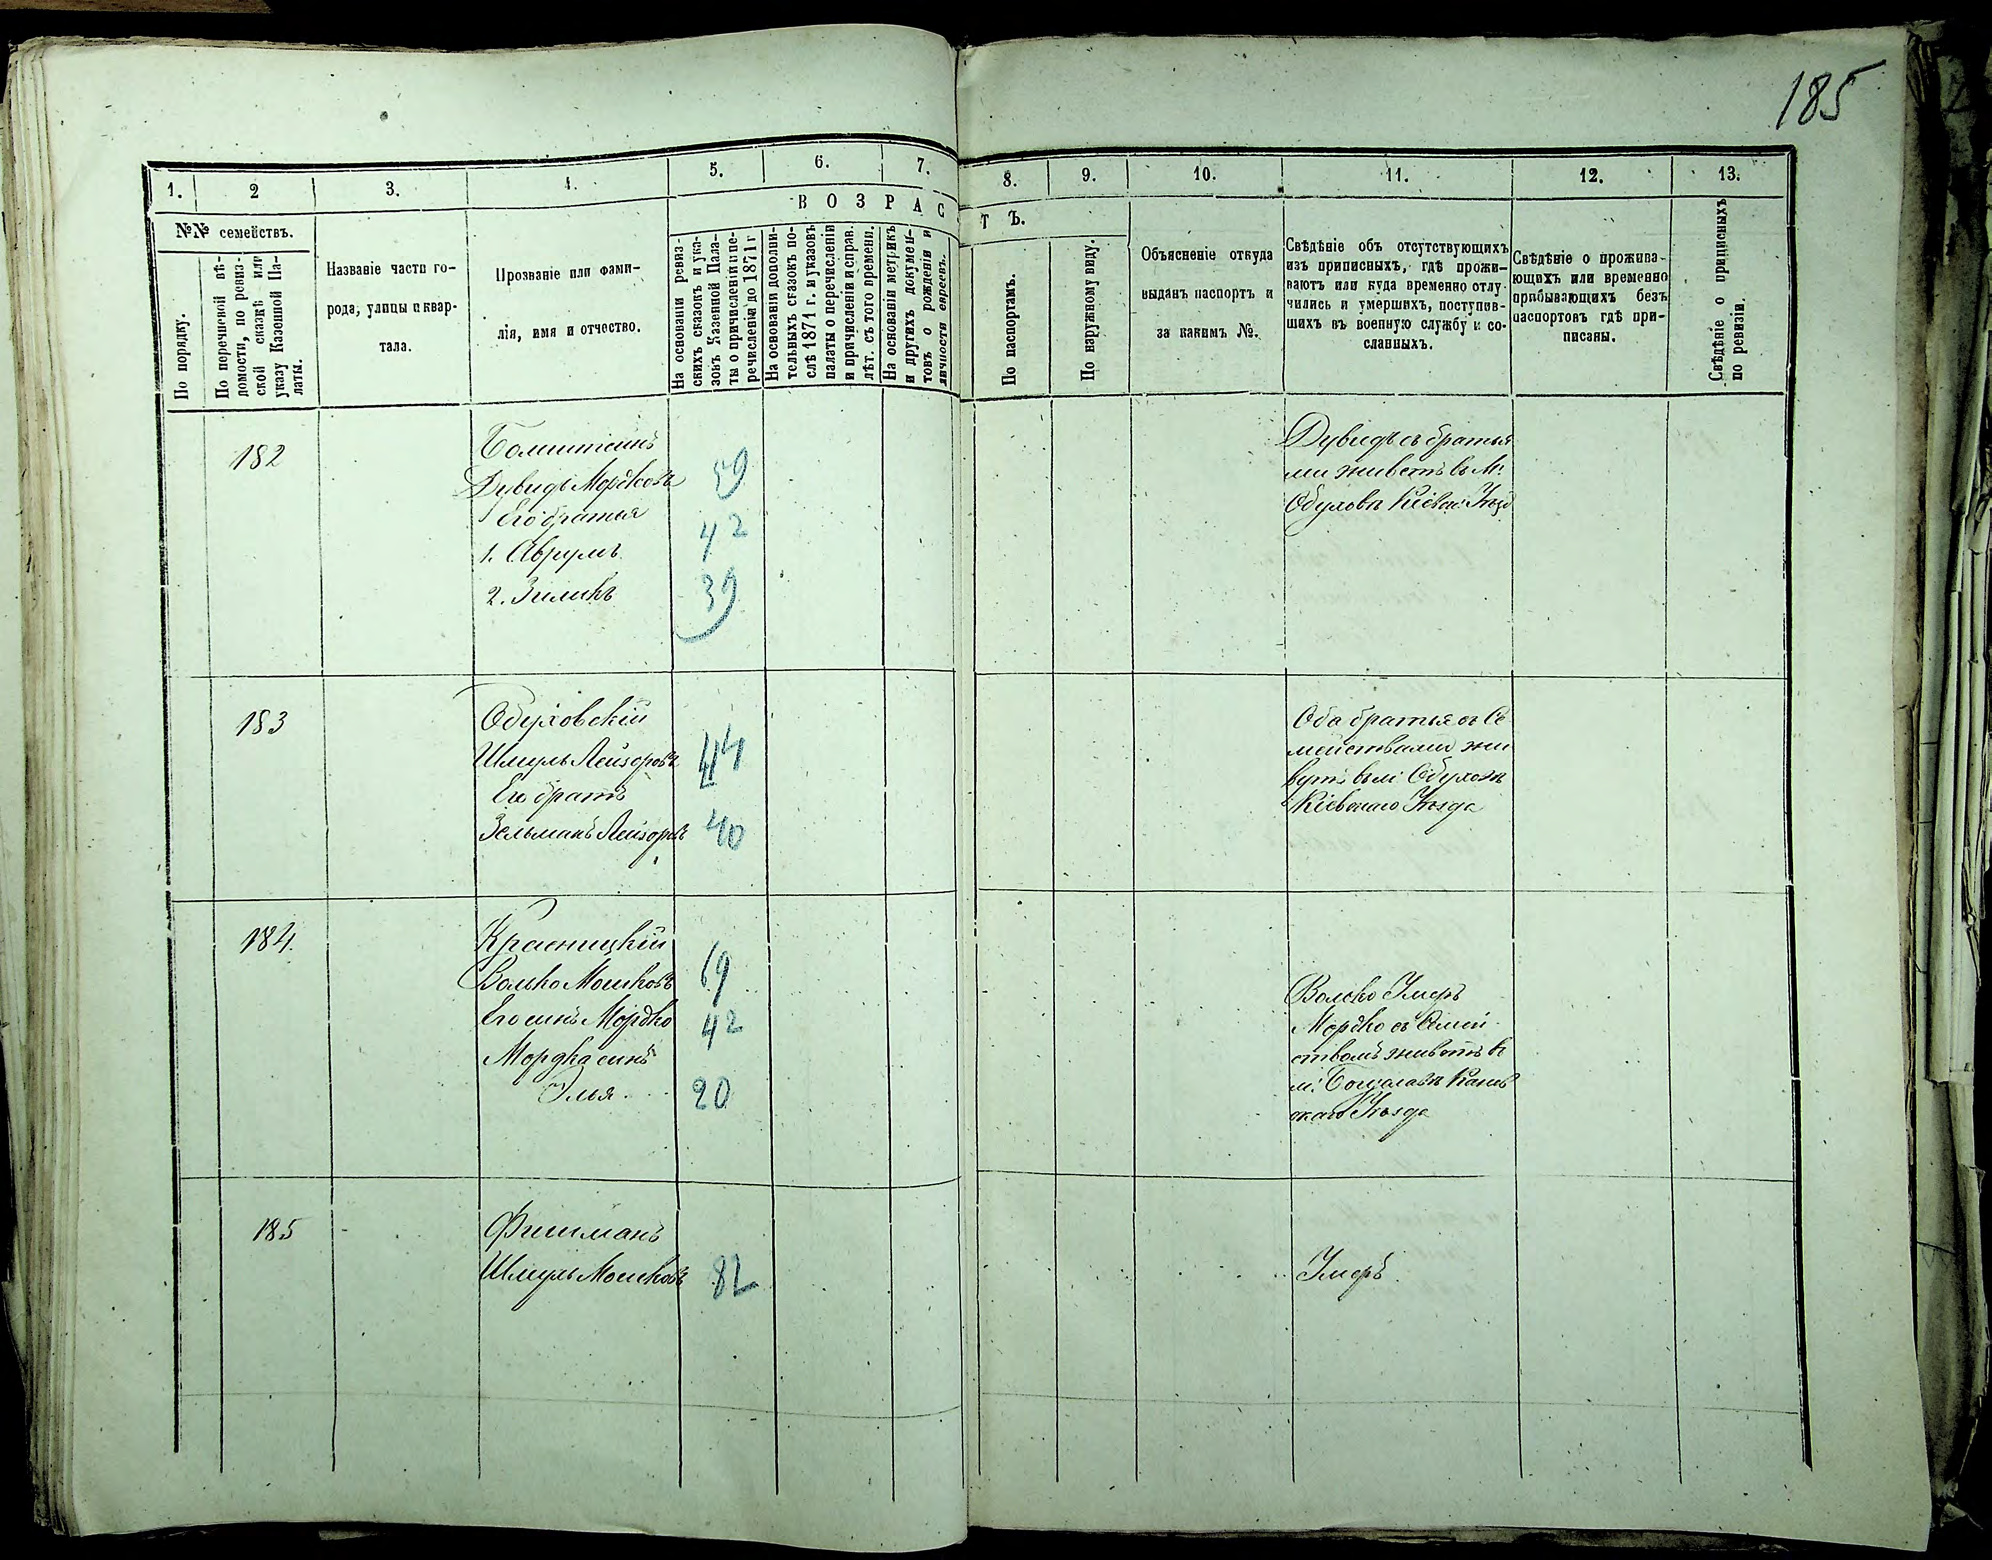 185
1.
2
3.
4.
5.
6.
7.
8.
9.
10.
11.
12.
13.
ВОЗРАСТЪ.
№№ семействъ.
По порядку.
По перечневой вѣ-
домости, по ревиз-
ской сказкѣ или
указу Казенной Па-
латы.
Названіе части го-
рода, улицы и квар-
тала.
Прозваніе или фами-
лія, имя и отчество.
На основаніи ревиз-
скихъ сказокъ и ука-
зовъ Казенной Пала-
ты о причисленіи и пе-
речисленіи до 1871 г
На основаніи дополни-
тельныхъ сказокъ по-
слѣ 1871 г. и указовъ
палаты о перечисленіи
и причисленіи и справ.
лѣт. съ того времени.
На основаніи метрикъ
и другихъ докумен-
товъ о рожденіи и
личности евреевъ.
По паспортамъ.
По наружному виду.
Объясненіе откуда
выданъ паспортъ и
за какимъ №.
Свѣдѣніе объ отсутствующихъ
изъ приписныхъ, гдѣ прожи-
ваютъ или куда временно отлу-
чились и умершихъ, поступив-
шихъ въ военную службу и со-
сланныхъ.
Свѣдѣніе о прожива-
ющихъ или временно
прибывающихъ безъ
паспортовъ гдѣ при-
писаны.
Свѣдѣніе о приписныхъ
по ревизіи.
182
Дувидъ Мордковъ 59
Его братья
1. Аврумъ 42
2. Зиликъ 39
Дувидъ съ братья
ми живетъ в М.
Обуховѣ Кіевск. Уѣзд
183
Обуховскій
Шмуль Лейзеровъ 44
Его братъ
Зельманъ Лейзоровъ 40
Оба братья съ Се
мействами жи
вутъ в м. Обуховѣ
Кіевскаго Уѣзда
184.
Красницкій
Волько Мошковъ 69
Его сынъ Мордко 42
Мордка сынъ
Элья 20
Волько Умеръ
Мордко съ Семей
ствомъ живетъ в
м. Богуславѣ Канев
скаго Уѣзда
185
Фишманъ
Шмуль Мошковъ 82
Умеръ